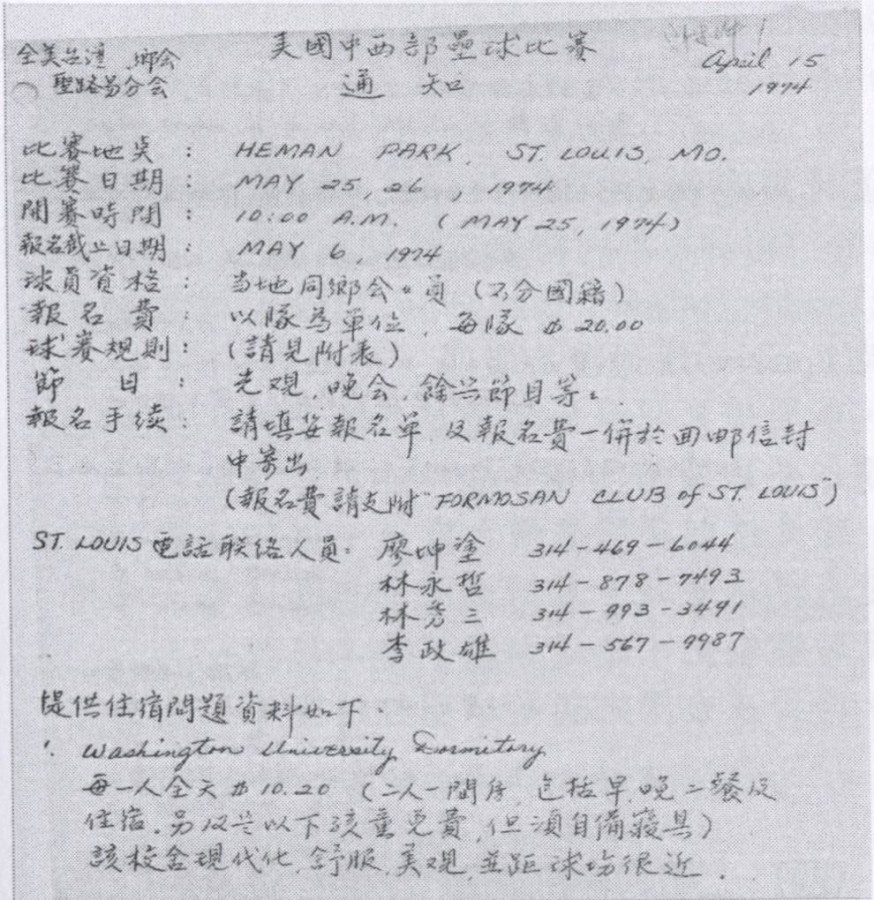 美國中西部壘球比賽
附件1
全美台湾 鄉会
聖路易分会
通 知
April 15
1974
比賽地点: HEMAN PARK, ST. LOUIS, MO.
比賽日期: MAY 25, 26, 1974
開賽時間: 10:00 A.M. (MAY 25, 1974)
報名截止日期: MAY 6, 1974
球員資格: 当地同鄉会。員 (不分國籍)
報名費: 以隊為單位, 每隊 $20.00
球賽規則: (請見附表)
節目: 先观, 晚会, 餘兴節目等。
報名手续: 請填妥報名单, 及報名費一併於回邮信封
中寄出
(報名費請支附 "FORMOSAN CLUB of ST. LOUIS")
ST. LOUIS 電話联络人員: 廖坤塗 314-469-6044
林永哲 314-878-7493
林秀三 314-993-3491
李政雄 314-567-9987
提供住宿問題資料如下.
1. Washington University Dormitory
每一人全天 $10.20 (二人一間房, 包括早, 晚二餐及
住宿. 另 以下孩童免費, 但須自備寢具)
該校舍現代化, 舒服, 美观, 並距球場很近.